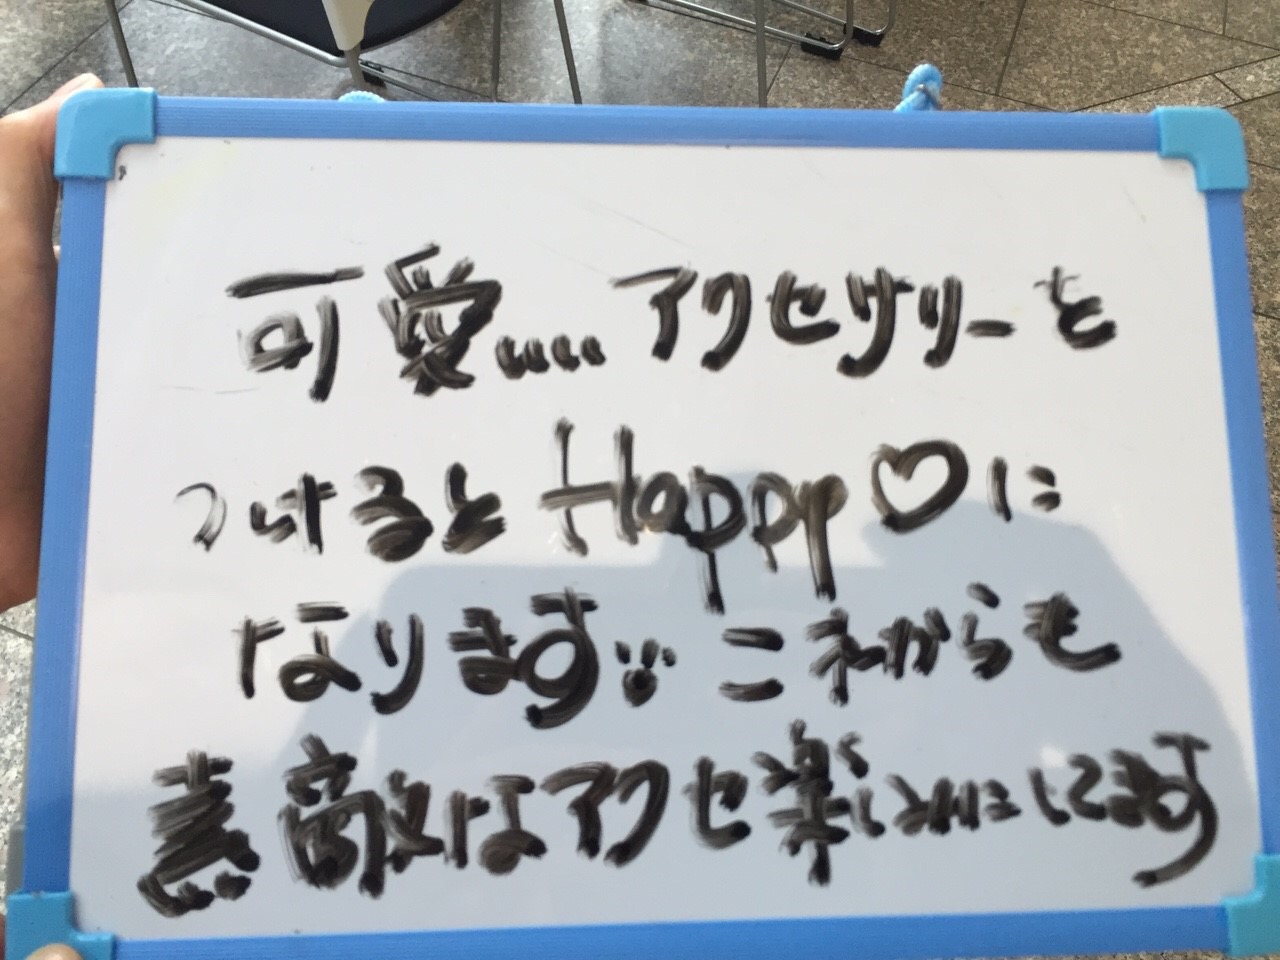 可愛いい アクセサリーを
つけるとHappy♡に
なります これからも
素敵なアクセ楽しみにしてます